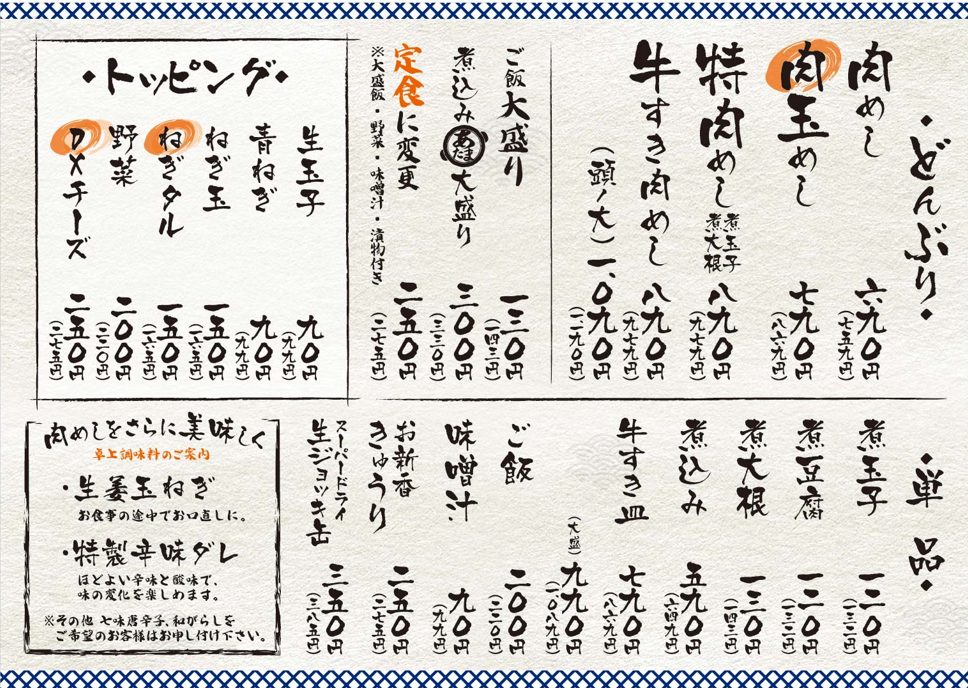 ・どんぶり・
肉めし 六九〇円
(七五九円)
肉玉めし 七九〇円
(八六九円)
特肉めし 煮玉子 煮大根 八九〇円
(九七九円)
牛すき肉めし 八九〇円
(九七九円)
(頭ノ大) 一、〇九〇円
(一一九〇円)
ご飯大盛り 一三〇円
(一四三円)
煮込みあたま大盛り 三〇〇円
(三三〇円)
定食に変更 二五〇円
(二七五円)
※大盛飯・野菜・味噌汁・漬物付き
・トッピング・
生玉子 九〇円
(九九円)
青ねぎ 九〇円
(九九円)
ねぎ玉 一五〇円
(一六五円)
ねぎタル 一五〇円
(一六五円)
野菜 二〇〇円
(二二〇円)
DXチーズ 二五〇円
(二七五円)
・単品・
煮玉子 一二〇円
(一三二円)
煮豆腐 一二〇円
(一三二円)
煮大根 一三〇円
(一四三円)
煮込み 五九〇円
(六四九円)
牛すき皿 七九〇円
(八六九円)
(大盛) 九九〇円
(一〇八九円)
ご飯 二〇〇円
(二二〇円)
味噌汁 九〇円
(九九円)
お新香
きゅうり 二五〇円
(二七五円)
スーパードライ
生ジョッキ缶 三五〇円
(三八五円)
肉めしをさらに美味しく
卓上調味料のご案内
・生姜玉ねぎ
お食事の途中でお口直しに。
・特製辛味ダレ
ほどよい辛味と酸味で、
味の変化を楽しめます。
※その他 七味唐辛子、和がらしを
ご希望のお客様はお申し付け下さい。